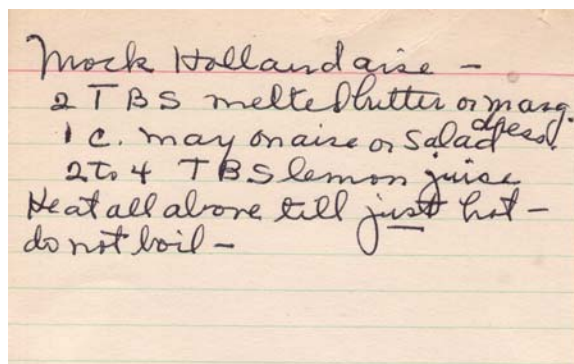 Mock Hollandaise —
2 TBS melted butter or marg.
1 c. mayonaise or salad dress.
2 to 4 TBS lemon juise
Heat all above till just hot —
do not boil —